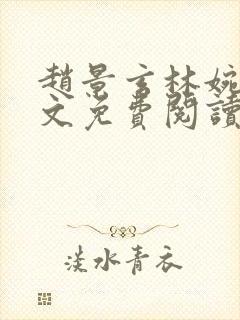 趙景言林婉
文免費閱讀
淡水青衣